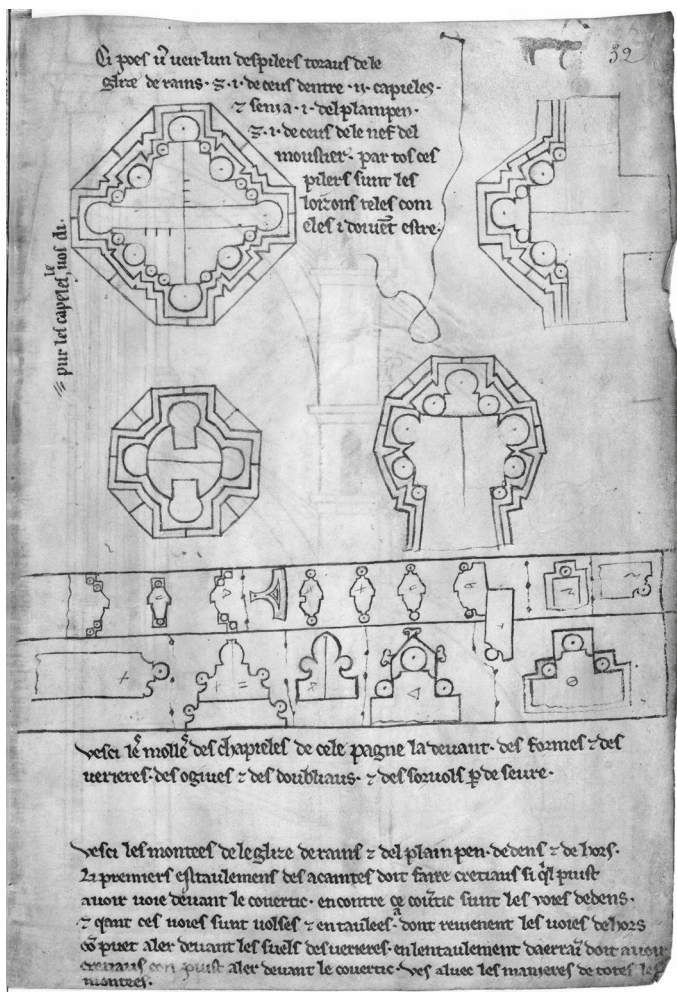 Ci poes vͬ veir lun des pilers toraus de le
glize de rains · ⁊ · i · de ceus dentre · ii · capieles ·
⁊ sen i a · i · del plain pen ·
⁊ · i · de ceus de le nef del
moustier · par tos ces
pilers sunt les
loizons teles com
eles i doivēt estre ·
32
sur les capeles
vesci les mollē des chapieles de cele pagne la devant · des formes ⁊ des
verieres · des ogives ⁊ des doubliaus · ⁊ des sorvols p̄ deseure ·
vesci les montees de le glize de rains ⁊ del plain pen · dedens ⁊ de hors ·
Li premiers estaulemens des acaintes doit faire cretiaus si qͥl puist
avoir voie devant le covertic · encontre ce covͬtic sunt les voies dedens ·
⁊ qant ces voies sunt volses ⁊ entaulees · adont revienent les voies dehors
cō puet aler devant les suels des verieres · en lentaulement daerrai doit avoir
cretiaus con puist aler devant le covertic · ves aluec les manieres de totes les
montees ·